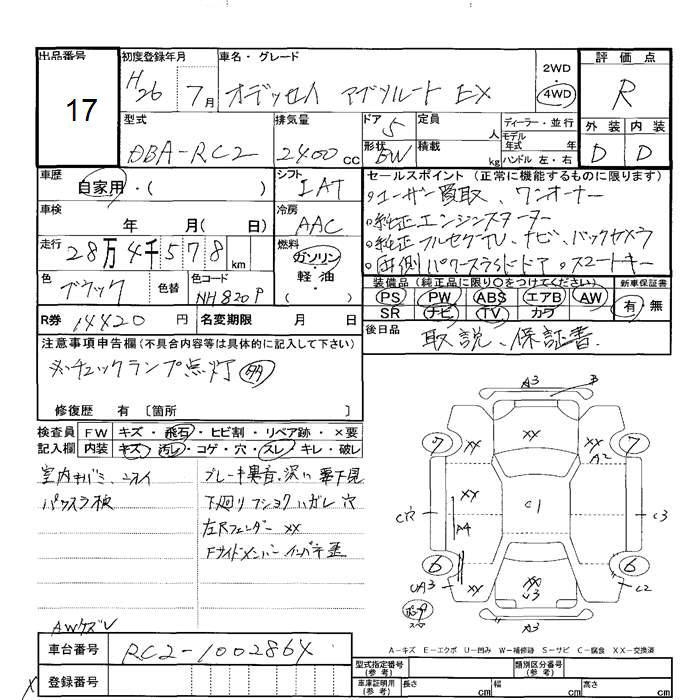 出品番号 初度登録年月 車名・グレード 評価点
17
H26 7月 オデッセイ アブソルート EX
2WD
4WD
R
外装 内装
D D
型式 排気量 ドア 定員 ディーラー・並行
DBA-RC2 2400cc 5 人
モデル年式 年
形状 積載 ハンドル 左・右
kg
車歴 シフト セールスポイント (正常に機能するものに限ります)
自家用・( ) IAT
。ユーザー買取、ワンオーナー
車検 冷房
年 月( 日) AAC
。純正エンジンスターター
走行 燃料
28万4千578km ガソリン・軽油・( )
。純正フルセグTV、ナビ、バックカメラ
。両側パワースライドドア 。スマートキー
色 色替 色コード
ブラック NH820P
装備品 (純正品に限り○をつけてください) 新車保証書
PS PW ABS エアB AW 有・無
SR ナビ TV カワ
R券 14420円 名変期限 月 日
後日品 取説、保証書
注意事項申告欄(不具合内容等は具体的に記入して下さい)
チェックランプ点灯
修復歴 有 〔箇所 〕
検査員 FW キズ・飛石・ヒビ割・リペア跡・×要
記入欄 内装 キズ・汚レ・コゲ・穴・スレ・キレ・破レ
ブレーキ異音
下廻り 穴
左Rフェンダー XX
A3 B
7 XX XX A2 7
XX
C1 C3
A4
6 XX XX 6
UA3 U3 C2
A3
AWケズレ
A-キズ E-エクボ U-凹み W-補修跡 S-サビ C-腐食 XX-交換済
車台番号 RC2-1002864
登録番号
型式指定番号(参考) 類別区分番号(参考)
車庫証明用(参考) 長さ cm 幅 cm 高さ cm